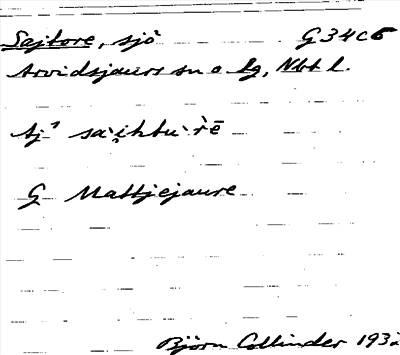 Sajtore, sjö G34c5
Arvidsjaurs sn o lg, Nbt l.
Aj³ sa`i̯htu`r̄ē
G Mattjejaure
Björn Collinder 1932